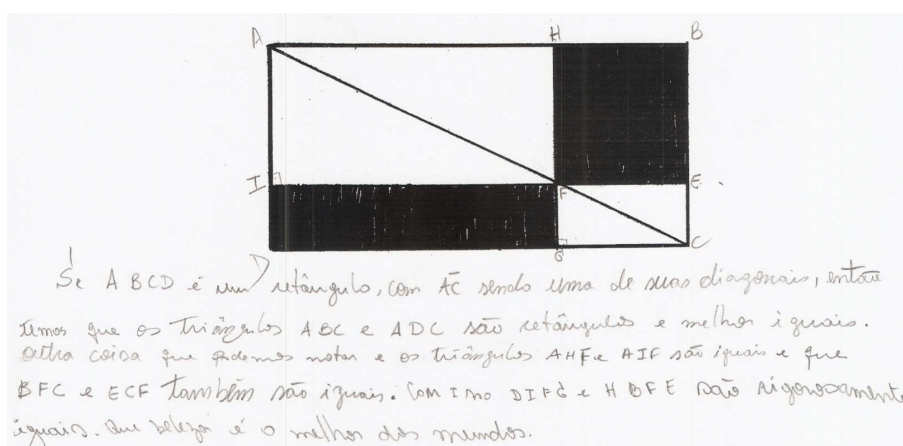 A H B
I F E
D G C
Se ABCD é um retângulo, com AC sendo uma de suas diagonais, então
temos que os triângulos ABC e ADC são retângulos e melhor iguais.
outra coisa que podemos notar e os triângulos AHF e AIF são iguais e que
BFC e ECF também são iguais. Com isso DIFG e HBFE são rigorosamente
iguais. Que beleza é o melhor dos mundos.